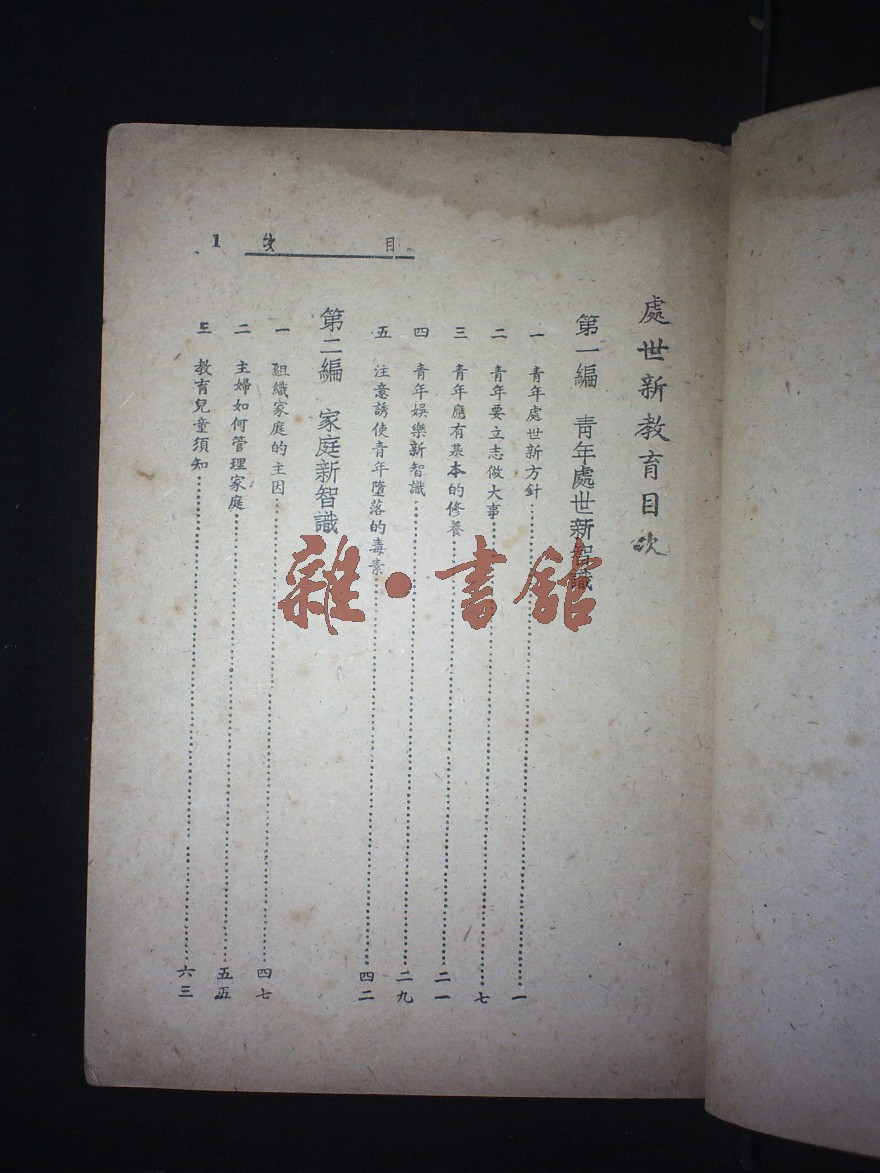 目次 1
處世新教育目次
第一編 青年處世新智識
一 青年處世新方針……一
二 青年要立志做大事……七
三 青年應有基本的修養……二一
四 青年娛樂新智識……二九
五 注意誘使青年墮落的毒素……四二
第二編 家庭新智識
一 組織家庭的主因……四七
二 主婦如何管理家庭……五五
三 教育兒童須知……六三
雜·書館